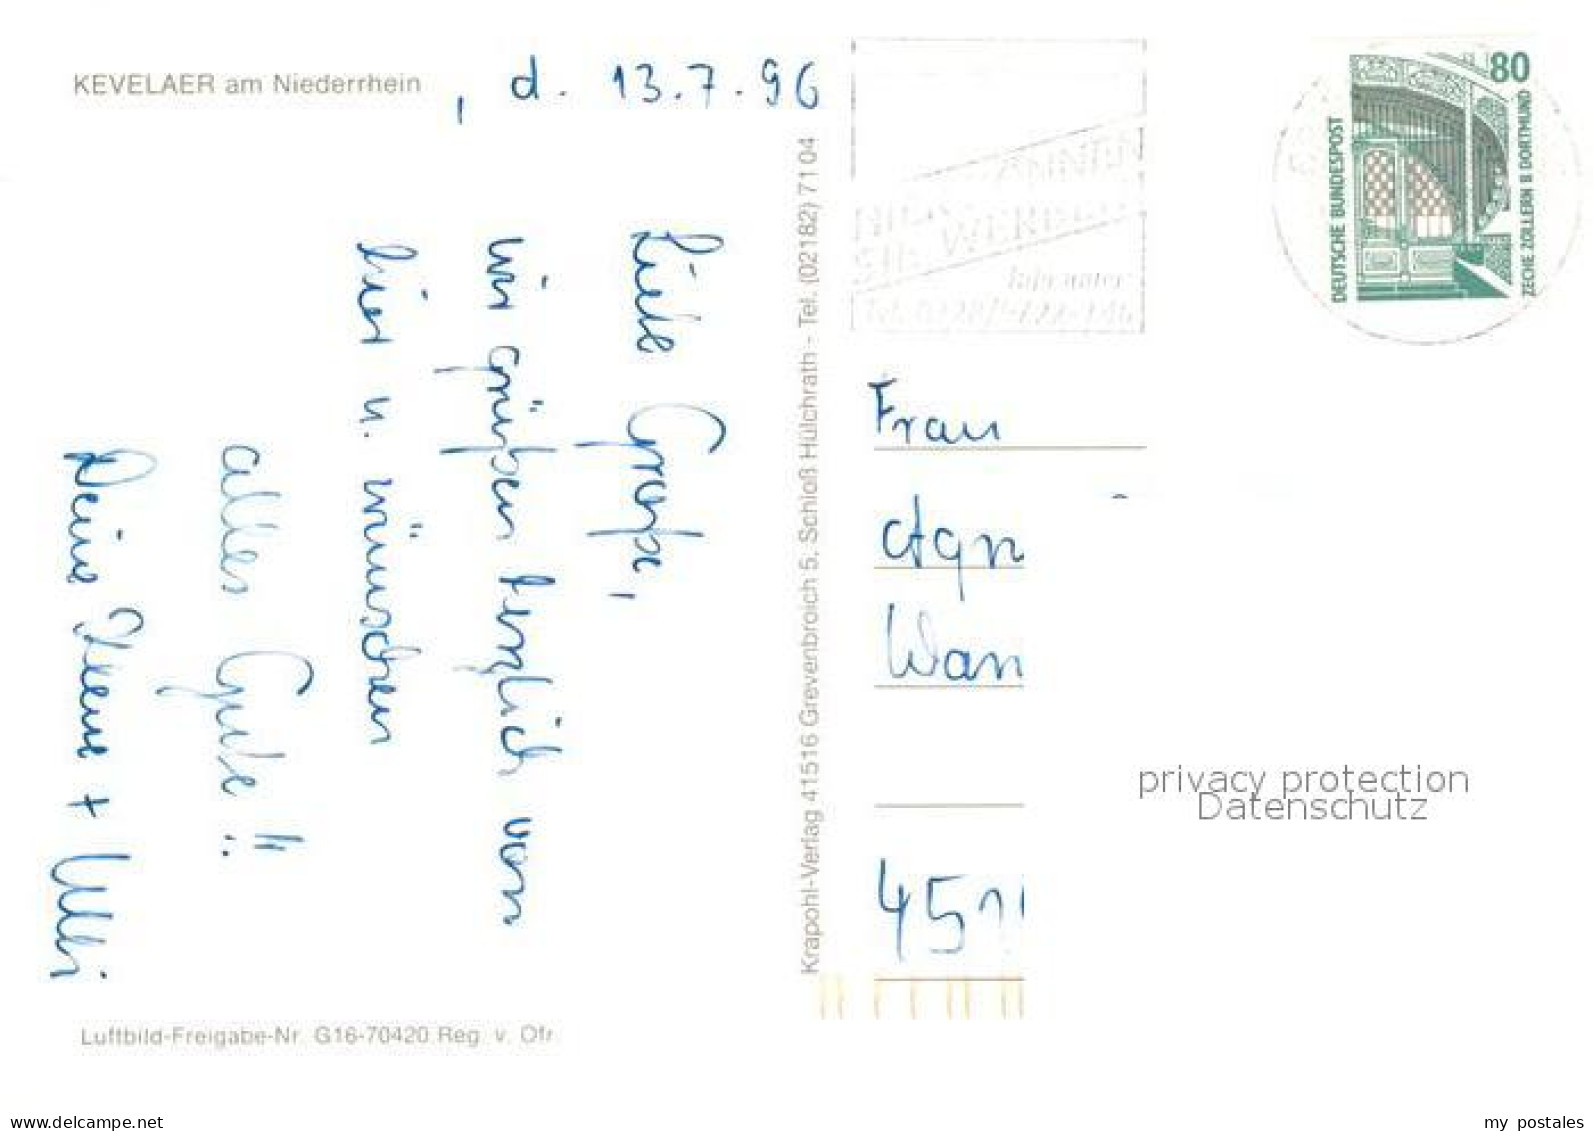 KEVELAER am Niederrhein
, d. 13.7.96
Liebe Große,
wir grüßen herzlich von
hier u. wünschen
alles Gute!!
Deine + Ulli
Luftbild-Freigabe-Nr. G16-70420 Reg. v. Ofr.
Krapohl-Verlag 41516 Grevenbroich 5, Schloß Hülchrath - Tel. (02182) 71 04
SIE WERBEN
80
DEUTSCHE BUNDESPOST
ZECHE ZOLLERN II DORTMUND
Frau
Agn
Wan
451
privacy protection
Datenschutz
www.delcampe.net
my postales